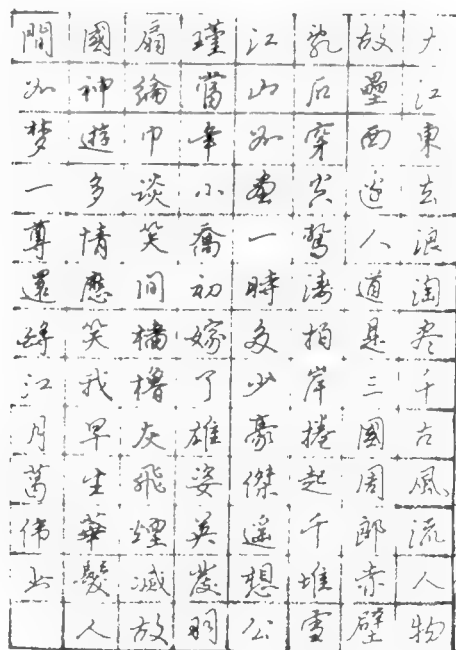 大江東去浪淘尽千古風流人物
故壘西邊人道是三國周郎赤壁
亂石穿空驚濤拍岸捲起千堆雪
江山如畫一時多少豪傑遥想公
瑾當年小喬初嫁了雄姿英發羽
扇綸巾談笑间檣櫓灰飛煙滅故
國神遊多情應笑我早生華髮人
間如梦一尊還酹江月葛伟业